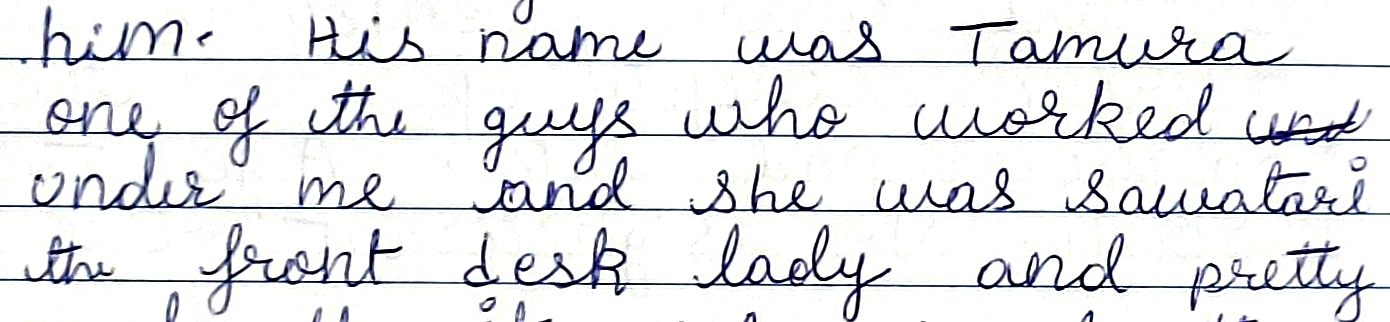 him. His name was Tamura
one of the guys who worked
under me and she was Sawatari
the front desk lady and pretty